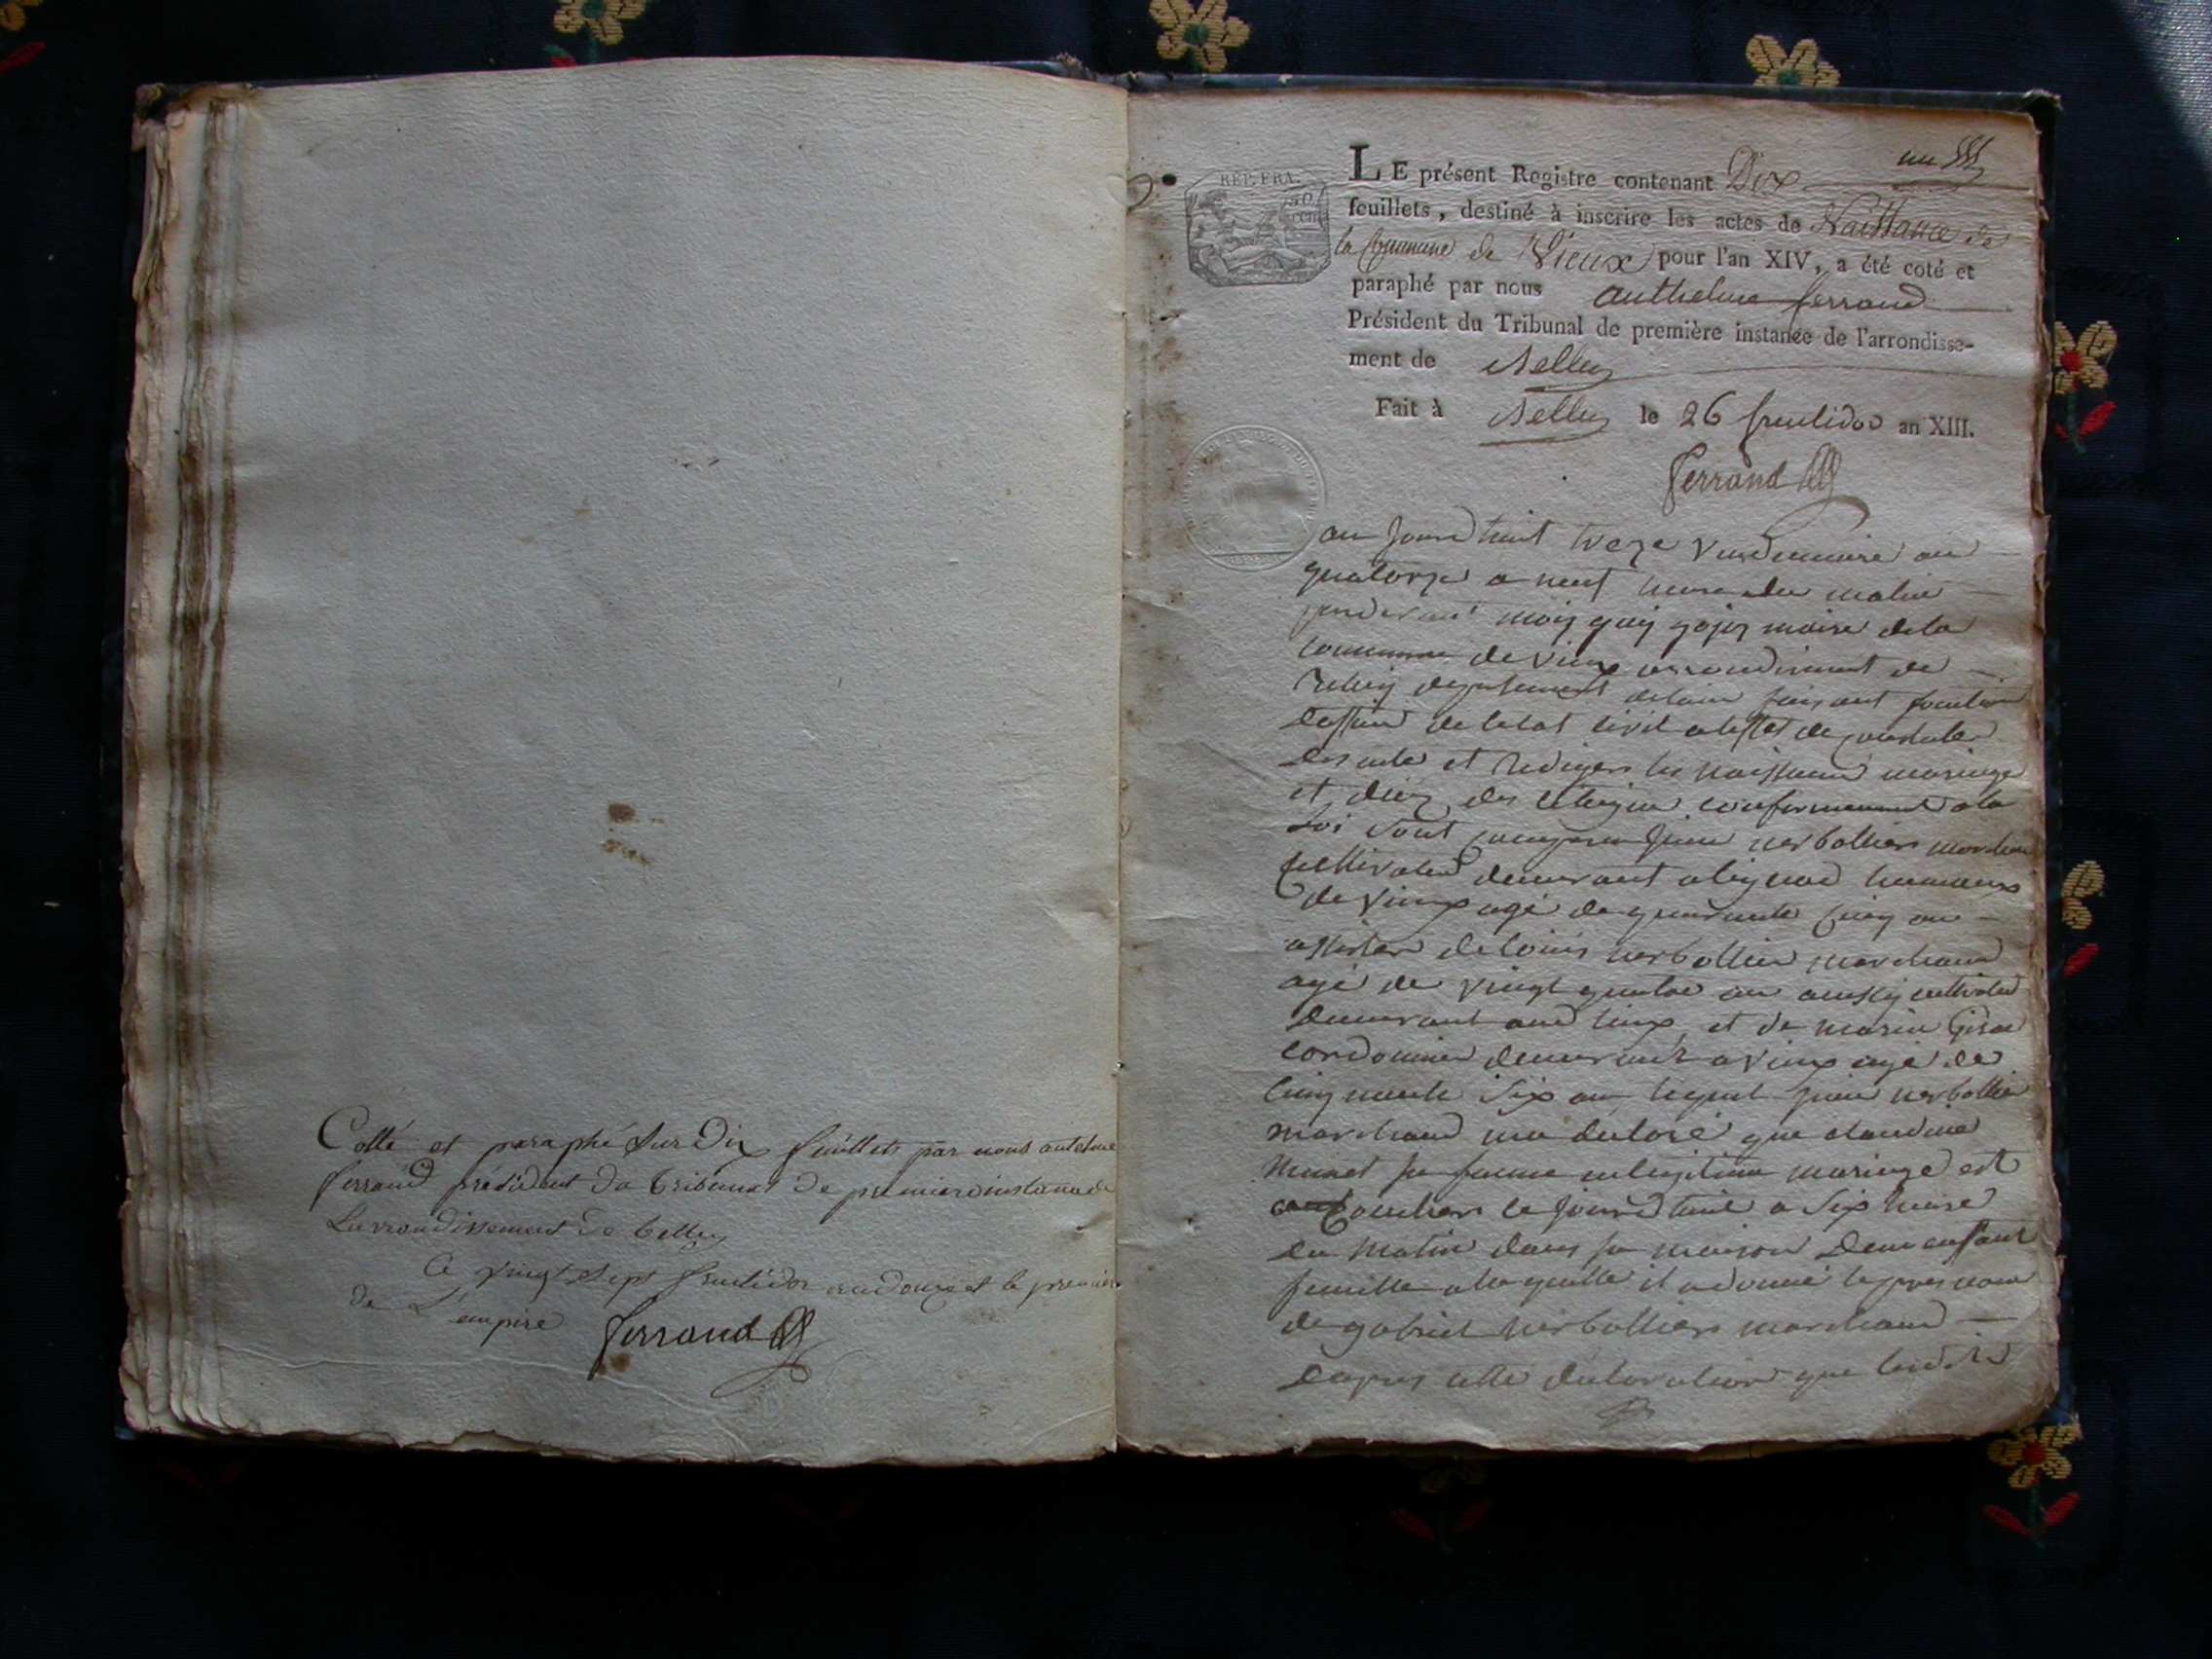 Cotté et paraphé Sur Dix feuillets par nous antelme
ferrand président du tribunal de premiere instance de
L'arrondissement de belley
Ce vingt Sept fructidor an douze et le premier
de L'empire ferrand
un
REP. FRA.
LE présent Registre contenant Dix
feuillets, destiné à inscrire les actes de Naissance de
la Commune de Vieux pour l'an XIV, a été coté et
paraphé par nous anthelme ferrand
Président du Tribunal de première instance de l'arrondisse-
ment de Belley
Fait à Belley le 26 fructidor an XIII.
ferrand
au jourd huit treze vendemiaire an
quatorze a neuf heure du matin
pardevant moy guy maire dela
commune de vieux arrondissement de
Belley departement delain faisant fonction
de letat civil aleffet de constater
et rediger les naissance mariage
et des conformement ala
loi sont comparu marchand
cultivateur demeurant alignod hameaux
de vieux agé de quarante cinq an
assister de louis marchand
agé de vingt quatre an aussy cultivateur
demeurant aud lieux et de
cordonnier demeurant a vieux agé de
cinquante six an lequel
marchand ma declaré que claudine
sa femme en legitime mariage est
accoucher ce jourd huit a six heure
du matin dans sa maison dun enfant
femelle a la quelle il a donné le prenom
de gabriel marchand
dapres cette declaration que